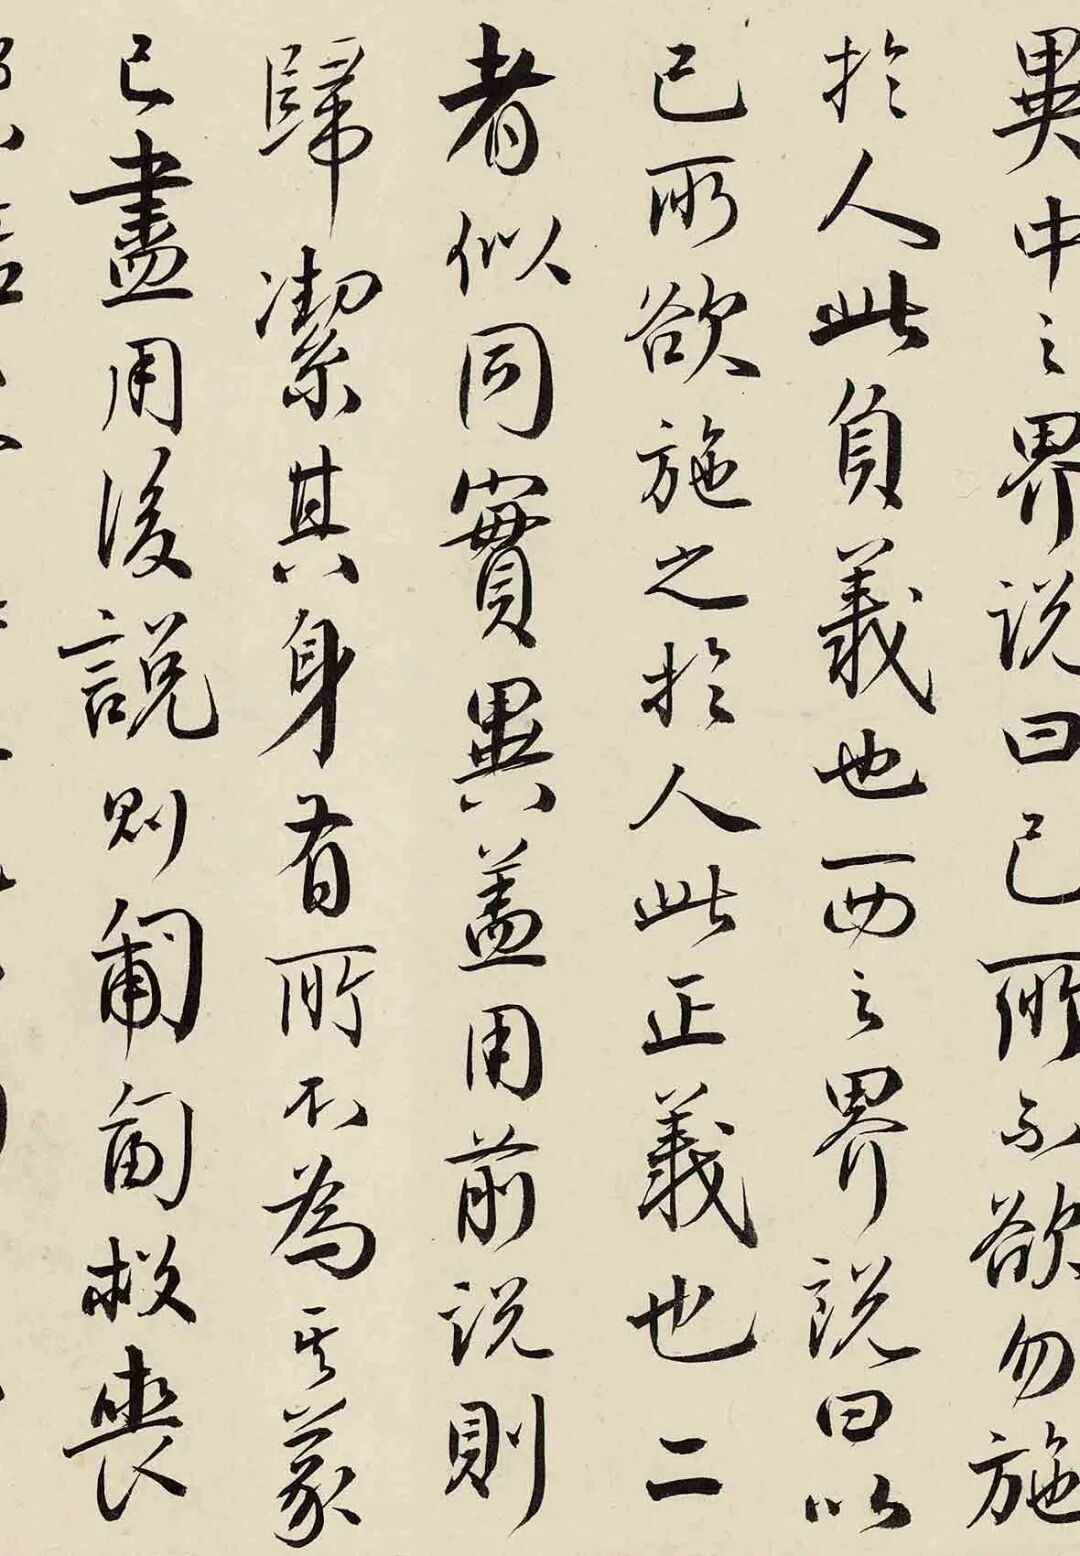 異中之界説曰己所不欲勿施
於人此負義也西之界説曰以
己所欲施之於人此正義也二
者似同實異蓋用前説則
歸潔其身有所不為其義
已盡用後説則匍匐救喪